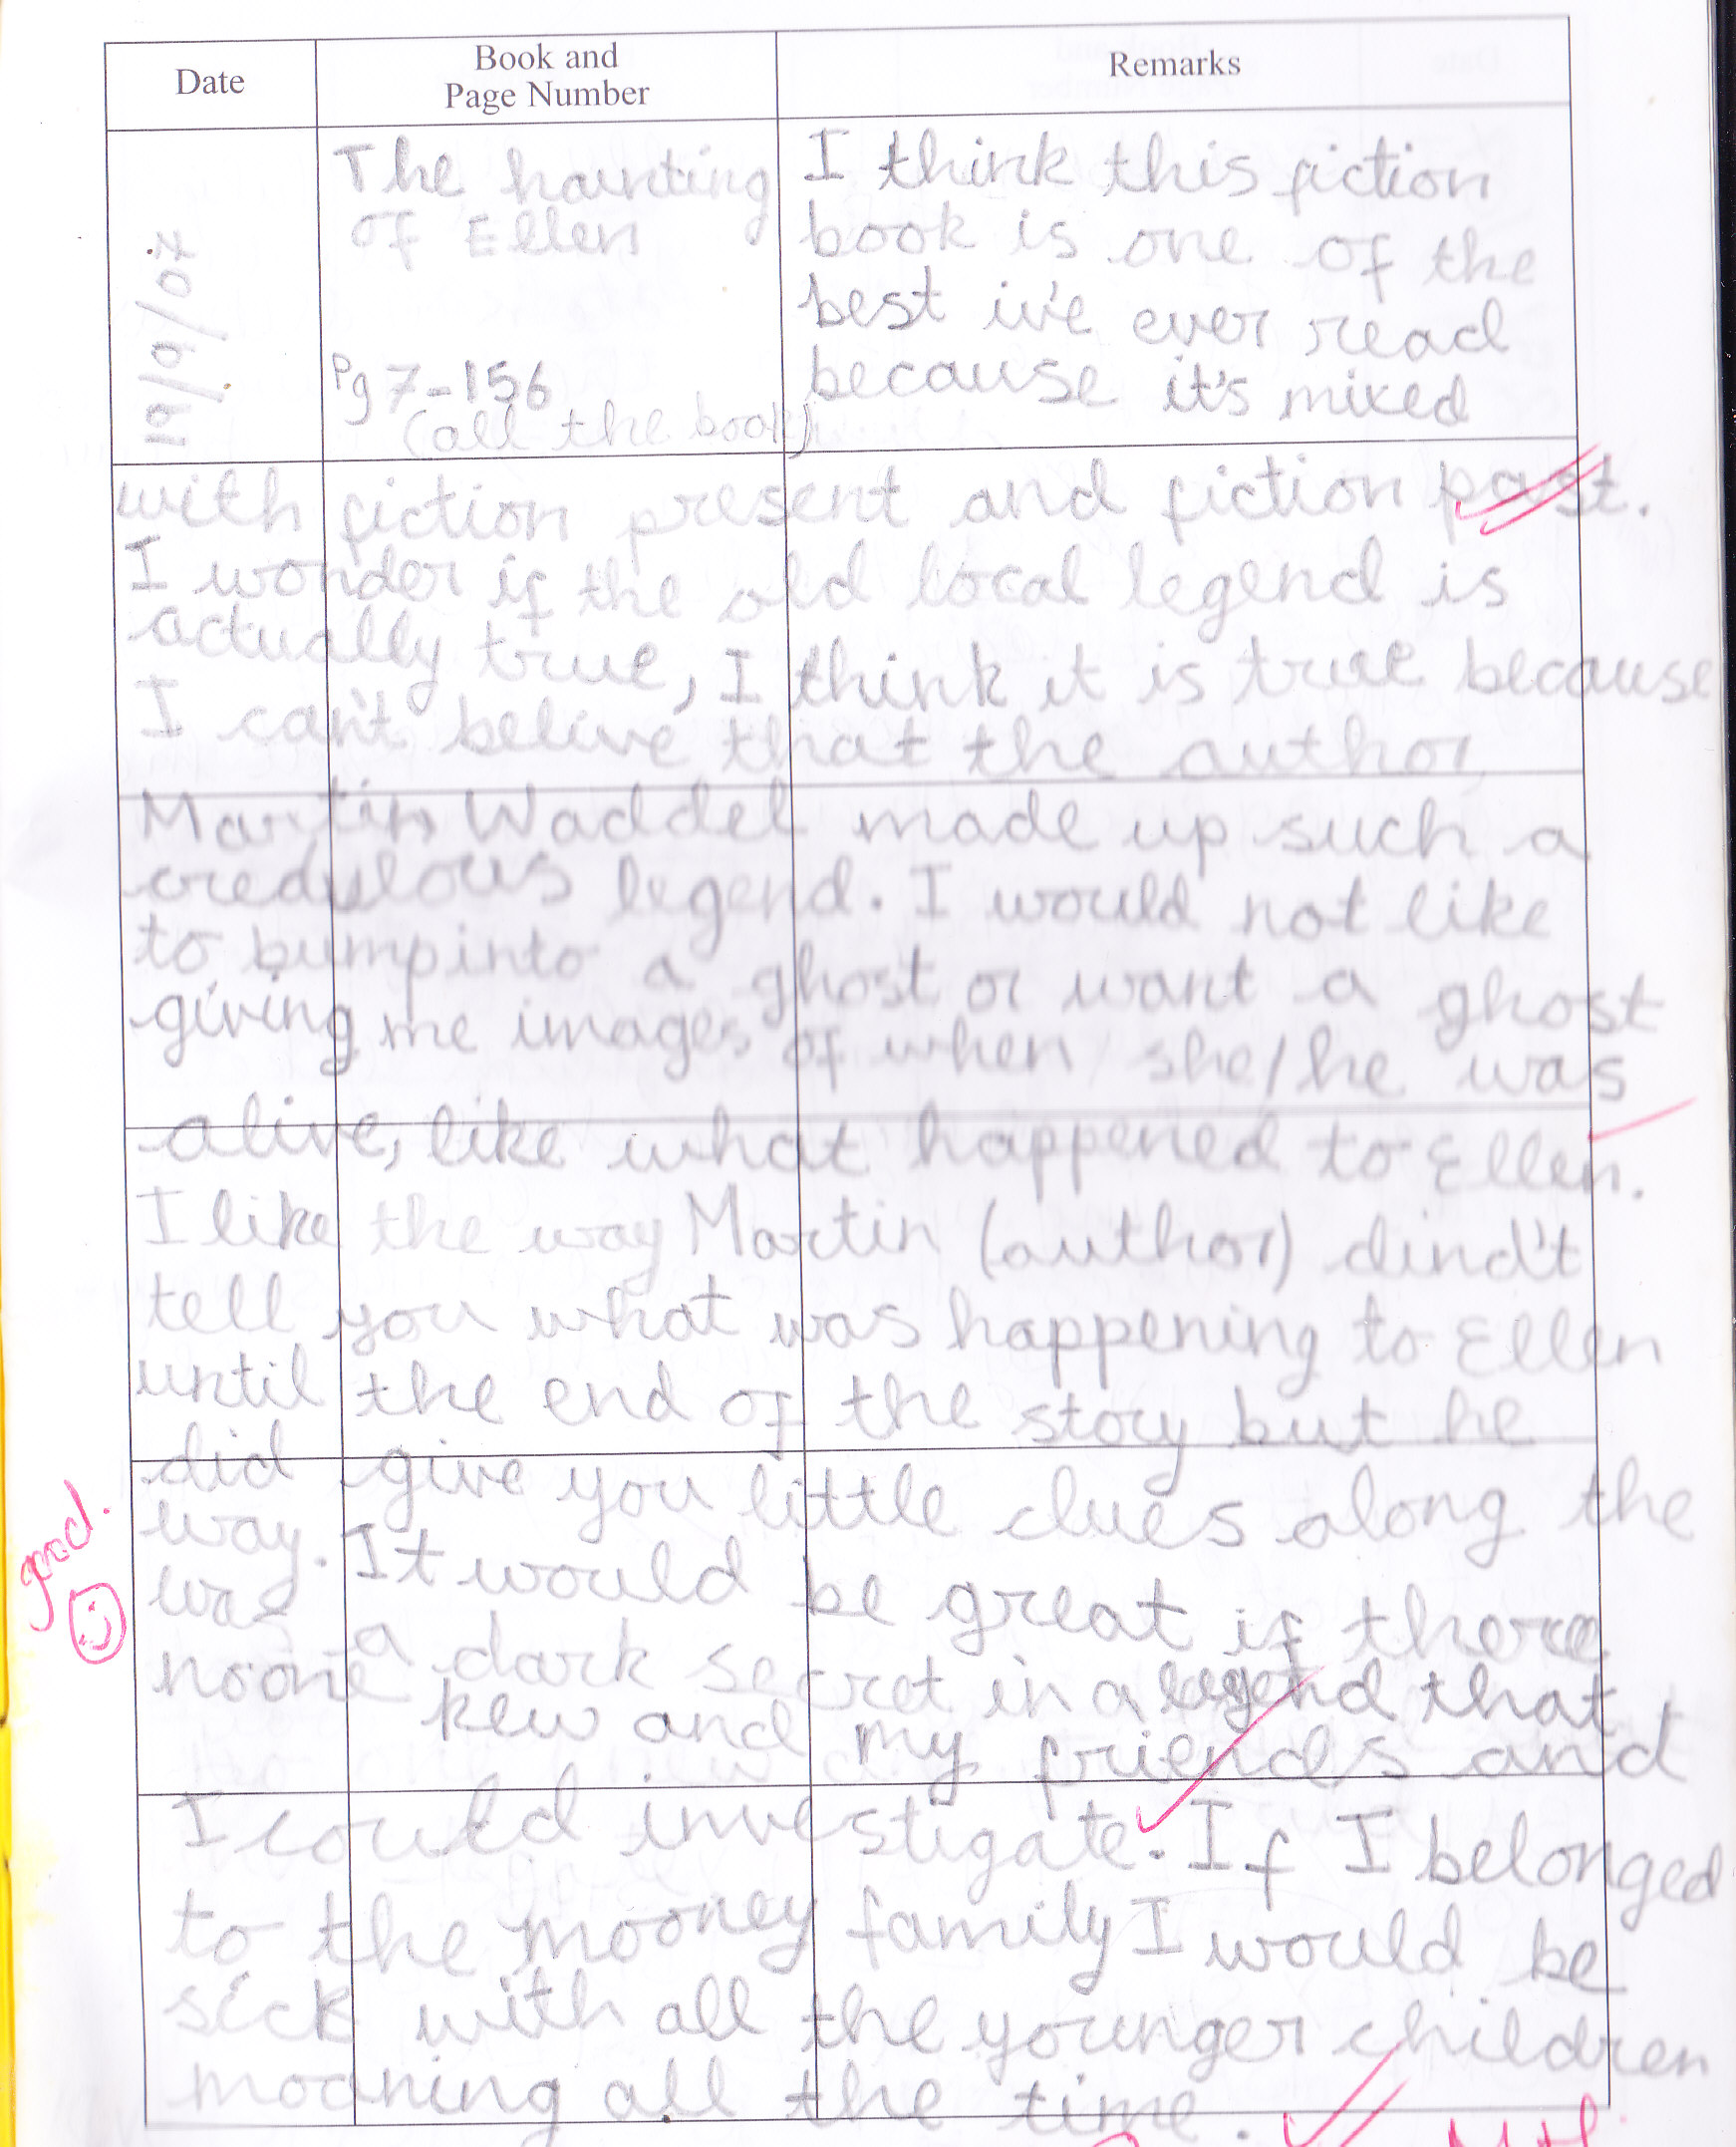 Date
Book and
Page Number
Remarks
19/9/07
The haunting
of Ellen
Pg 7-156
(all the book)
I think this fiction
book is one of the
best iv'e ever read
because it's mixed
with fiction present and fiction past.
I wonder if the old local legend is
actually true, I think it is true because
I can't belive that the author
Martin Waddel made up such a
credulous legend. I would not like
to bump into a ghost or want a ghost
giving me images of when she/he was
alive, like what happened to Ellen.
I like the way Martin (author) dind't
tell you what was happening to Ellen
until the end of the story but he
did give you little clues along the
way. It would be great if there
was a dark secret in a legend that
noone kew and my friends and
I could investigate. If I belonged
to the mooney family I would be
sick with all the younger children
moaning all the time.
good.